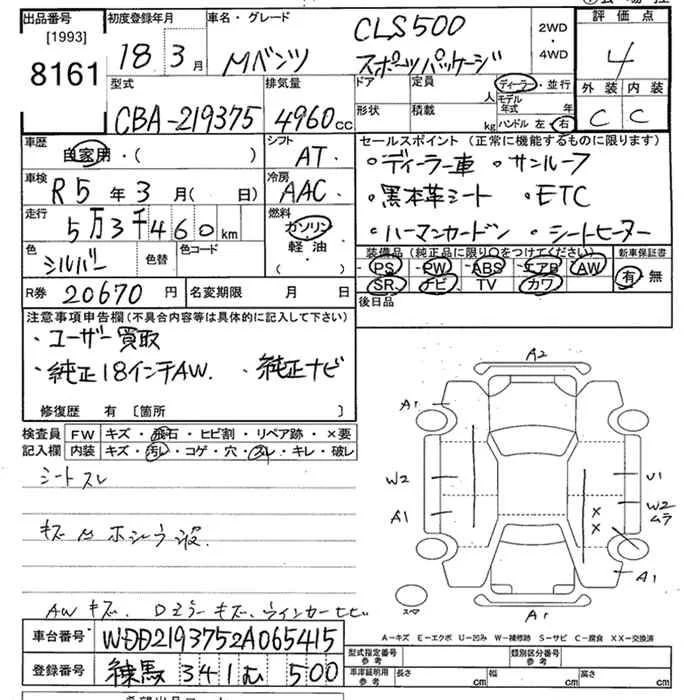 出品番号
[1993]
8161
初度登録年月
18年3月
車名・グレード
Mベンツ
CLS500
スポーツパッケージ
2WD
・
4WD
評価点
4
外装 内装
C C
型式
CBA-219375
排気量
4960cc
ドア
形状
定員
人
積載
kg
ディーラー・並行
モデル年式 年
ハンドル 左・右
車歴
自家用・( )
シフト
AT
車検
R5年3月( 日)
冷房
AAC
走行
5万3千460km
燃料
ガソリン
・
軽油
・
( )
色
シルバー
色替
色コード
R券 20670円
名変期限 月 日
セールスポイント (正常に機能するものに限ります)
・ディーラー車 ・サンルーフ
・黒本革シート ・ETC
・ハーマンカードン ・シートヒーター
装備品(純正品に限り○をつけてください)
PS PW ABS エアB AW
SR ナビ TV カワ
新車保証書
有・無
後日品
注意事項申告欄(不具合内容等は具体的に記入して下さい)
・ユーザー買取
・純正18インチAW. ・純正ナビ
修復歴 有 〔箇所 〕
検査員
記入欄
FW キズ・飛石・ヒビ割・リペア跡・×要
内装 キズ・汚レ・コゲ・穴・スレ・キレ・破レ
シートスレ
AWキズ. Dミラーキズ.ウインカーヒビ
A2
A1
W2
A1
U1
W2
ムラ
×
×
A1
A1
スペア
A−キズ E−エクボ U−凹み W−補修跡 S−サビ C−腐食 XX−交換済
車台番号 WDD2193752A065415
登録番号 練馬 341 む 500
型式指定番号
参考
類別区分番号
参考
車庫証明用
参考
長さ cm
幅 cm
高さ cm